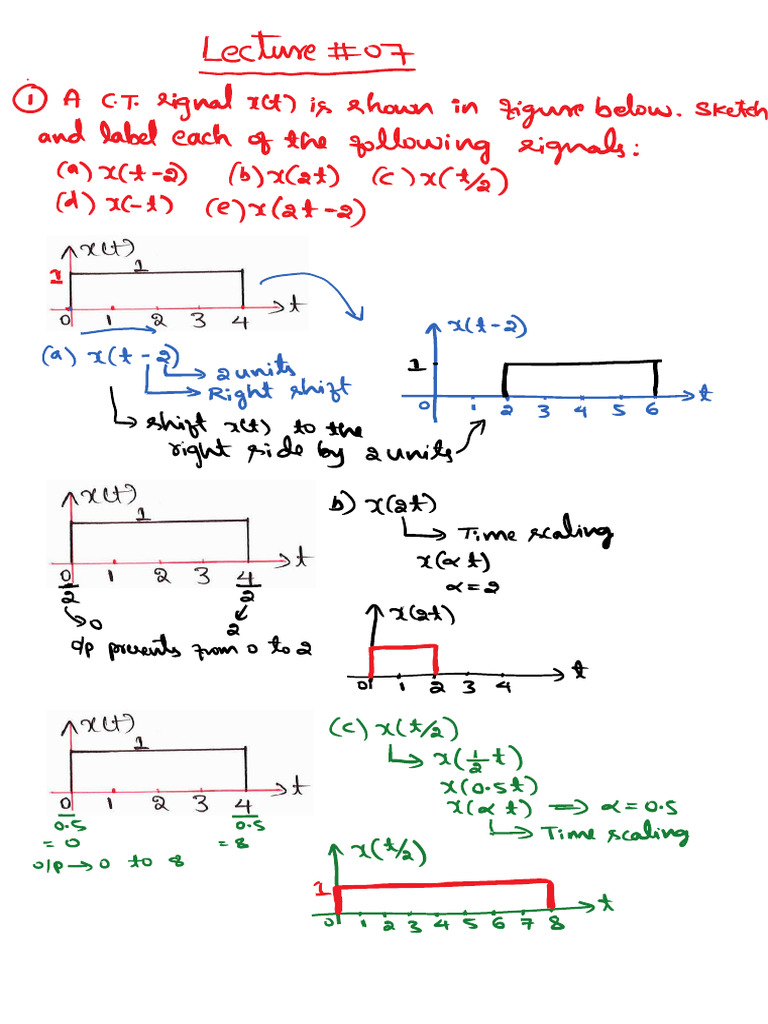 Lecture #07
① A C.T. signal x(t) is shown in figure below. Sketch
and label each of the following signals:
(a) x(t-2) (b) x(2t) (c) x(t/2)
(d) x(-t) (e) x(2t-2)
x(t)
1 1
0 1 2 3 4 t
(a) x(t-2)
2 units
Right shift
shift x(t) to the
right side by 2 units
x(t-2)
1
0 1 2 3 4 5 6 t
x(t)
1
0 1 2 3 4 t
2 2
0 2
o/p presents from 0 to 2
b) x(2t)
Time scaling
x(α t)
α = 2
x(2t)
0 1 2 3 4 t
x(t)
1
0 1 2 3 4 t
0.5 0.5
= 0 = 8
o/p → 0 to 8
(c) x(t/2)
x(1/2 t)
x(0.5t)
x(α t) ⟹ α = 0.5
Time scaling
x(t/2)
1
0 1 2 3 4 5 6 7 8 t